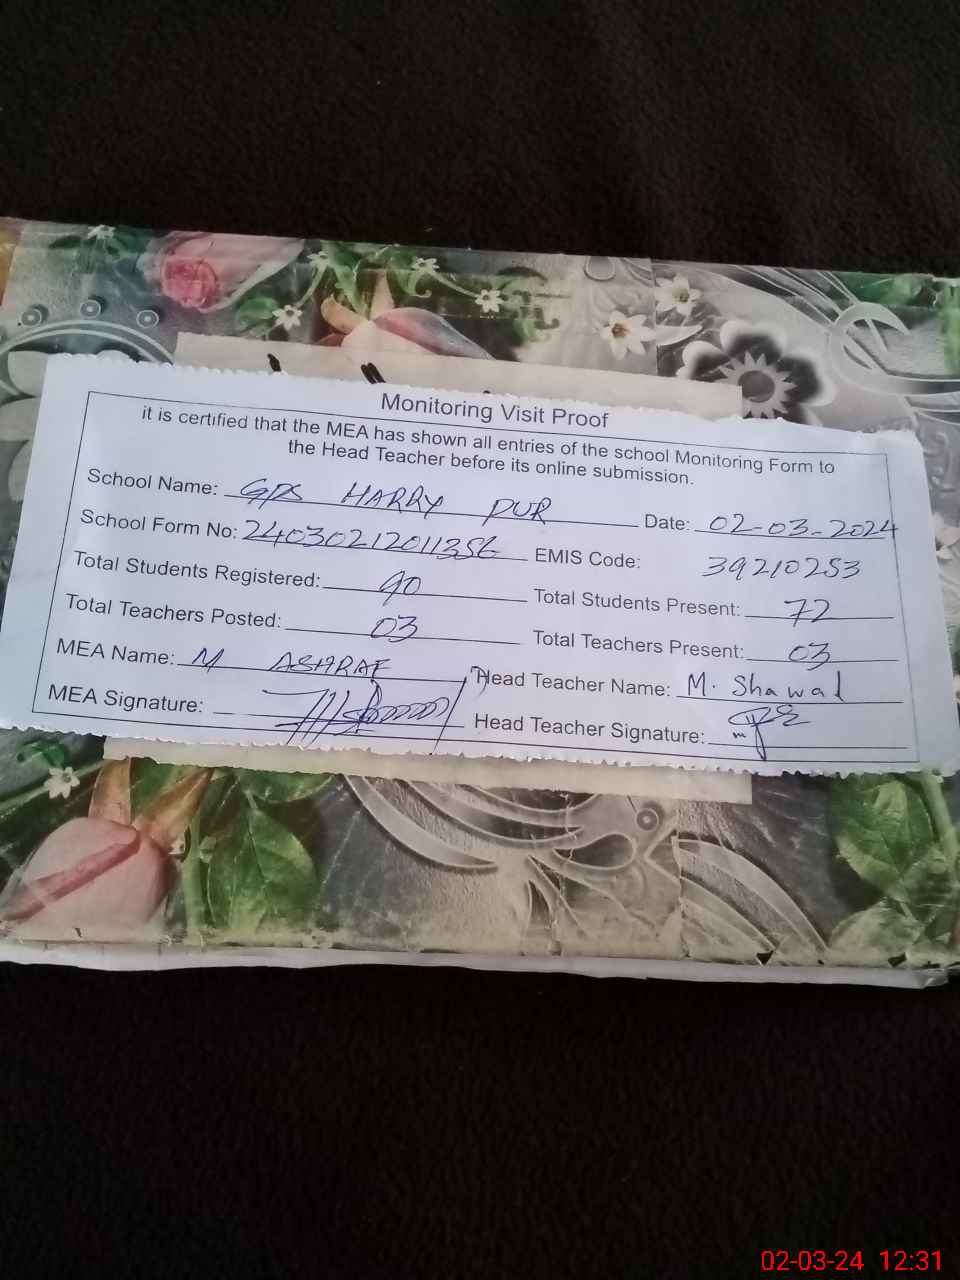 Monitoring Visit Proof
it is certified that the MEA has shown all entries of the school Monitoring Form to
the Head Teacher before its online submission.
School Name: GPS HARRY PUR Date: 02-03-2024
School Form No: 24030212011356 EMIS Code: 39210253
Total Students Registered: 90 Total Students Present: 72
Total Teachers Posted: 03 Total Teachers Present: 03
MEA Name: M ASHRAF Head Teacher Name: M. Shawal
MEA Signature: Head Teacher Signature:
02-03-24 12:31